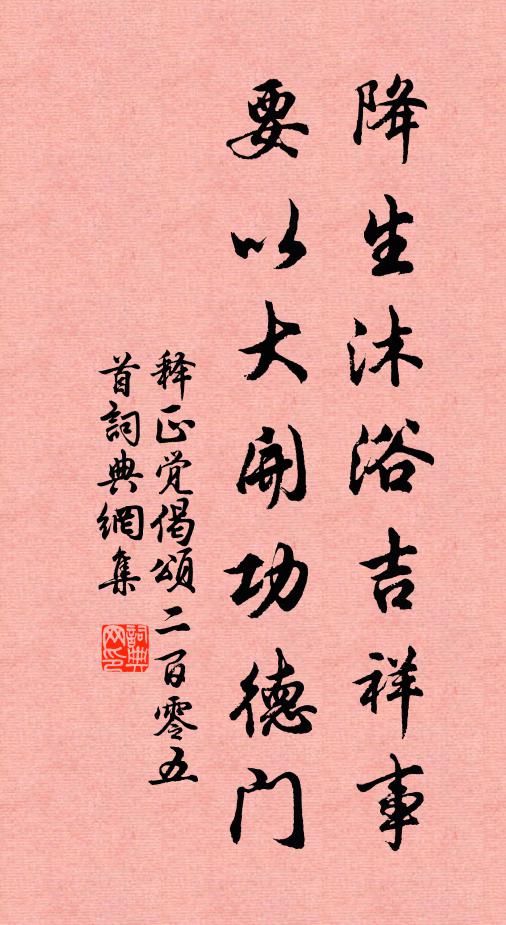 降生沐浴吉祥事
要以大开功德门
释正觉偈颂二百零五
首词典网集
词典网印